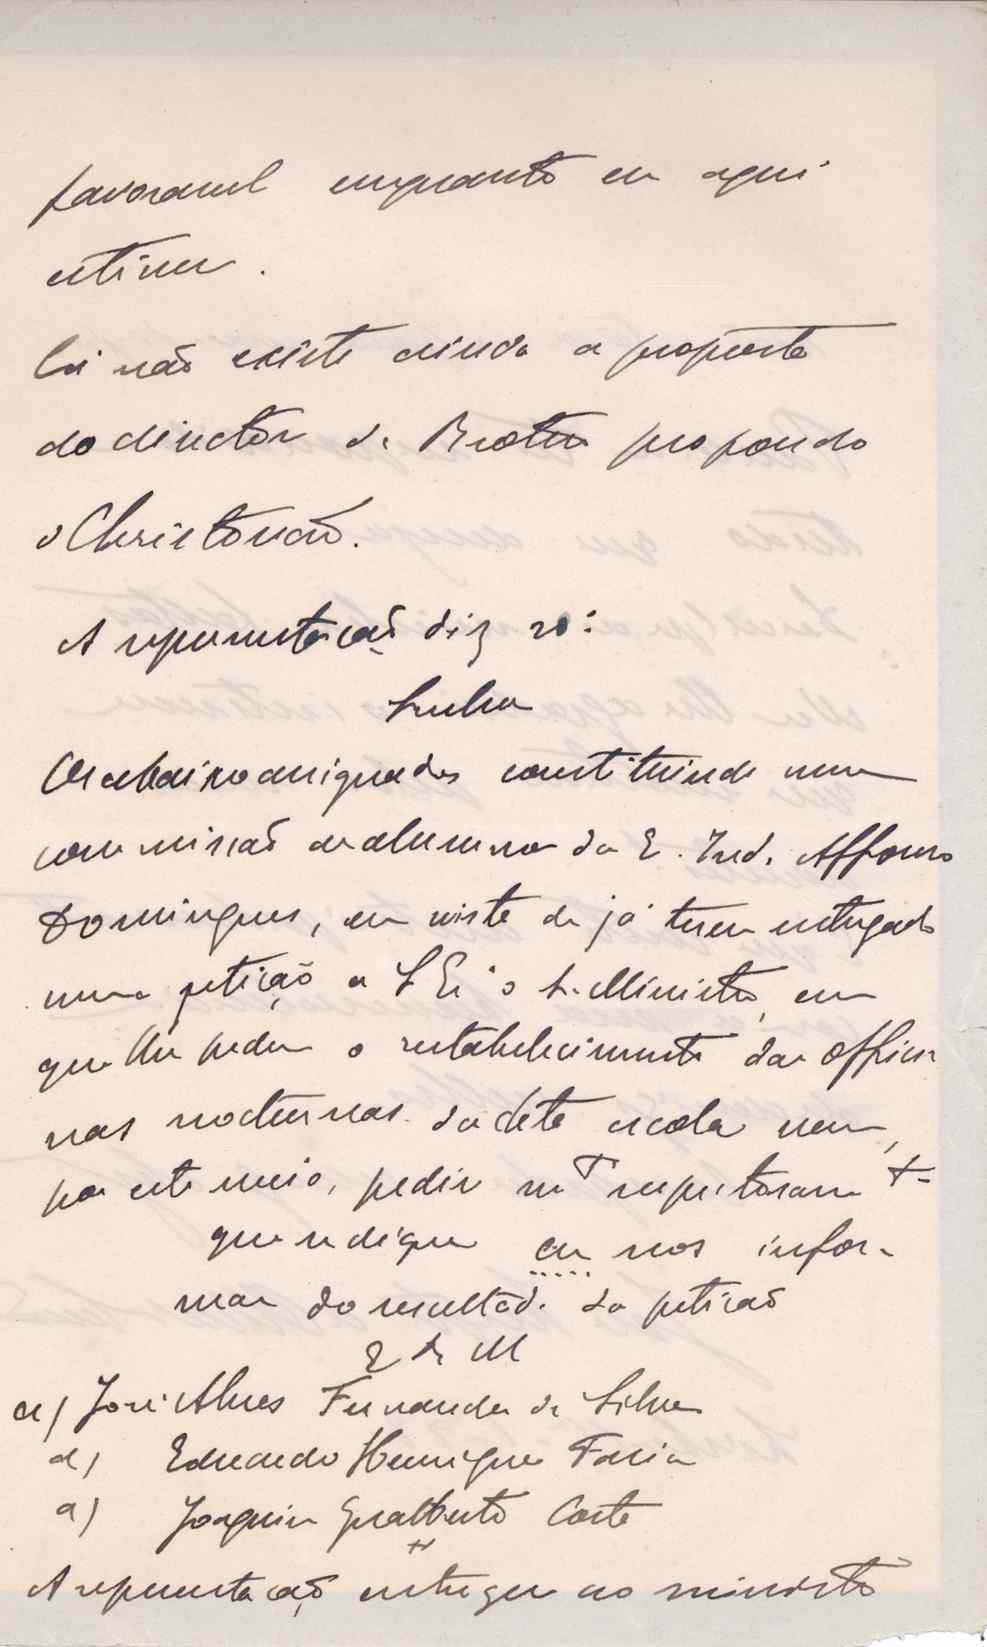 favoravel emquanto eu aqui
estiver.
Cá não existe ainda a proposta
do director da Brotero propondo
o Christovão.
A representação diz só:
Os abaixo assignados constituindo uma
commissão de alumnos da E. Ind. Affonso
Domingues, em vista de já terem entregado
uma petição a S Ex.ª o Sr. Ministro, em
que lhe pedem o restabelecimento das offici
nas nocturnas desta escola vem,
por este meio, pedir m.to respeitosam.te
que se digne em nos infor-
mar do resultado da petição
E. R. M
a) José Alves Fernandes da Silva
a) Eduardo Henriques Faria
a) Joaquim Gualberto Costa
A representação entregue ao ministro